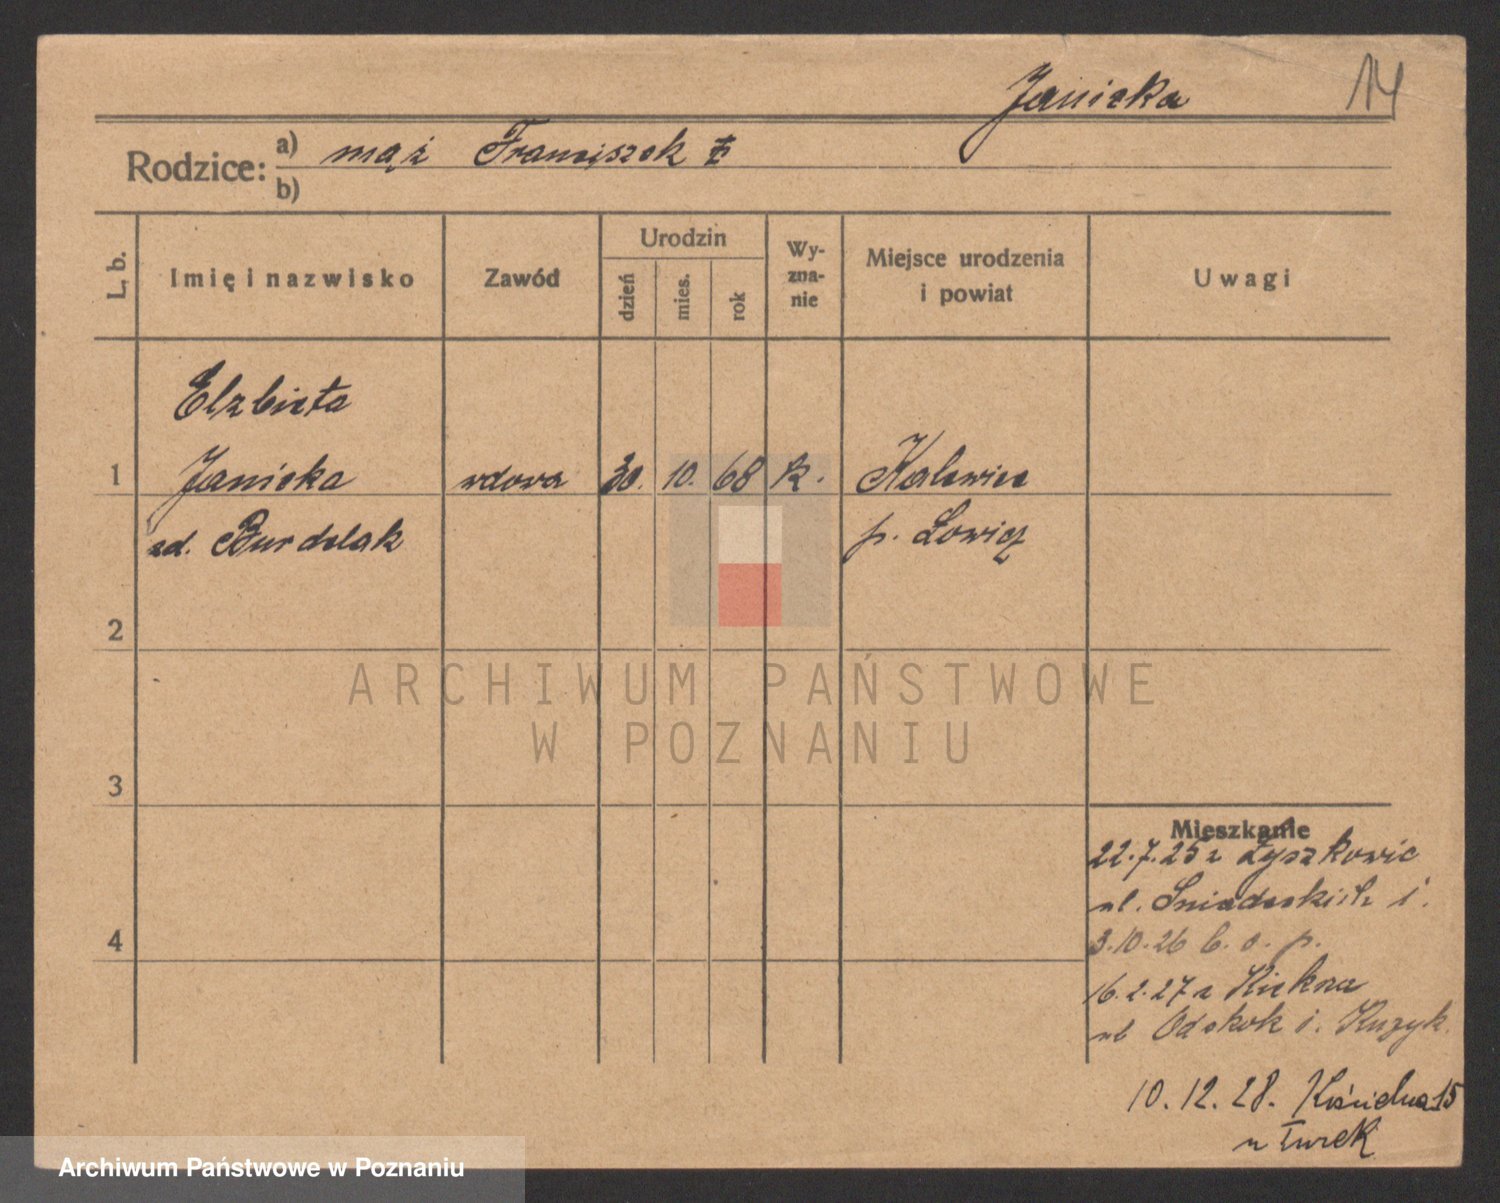 Janicka 14
Rodzice:
a) mąż Franciszek
b)
L. b.
Imię i nazwisko
Zawód
Urodzin
dzień
mies.
rok
Wy-
zna-
nie
Miejsce urodzenia
i powiat
Uwagi
Elzbieta
1 Janicka wdowa 30. 10. 68 k. Kalewice
zd. Burdelak p. Łowicz
2
3
4
Mieszkanie
22.7.25 z Łyszkowic
ul. Sniadeckich 1.
3.10.26 b. o. p.
16.2.27 z Kiekrza
ul Odskok 1.
10.12.28. Kościelna 15
u Turek
ARCHIWUM PAŃSTWOWE
W POZNANIU
Archiwum Państwowe w Poznaniu